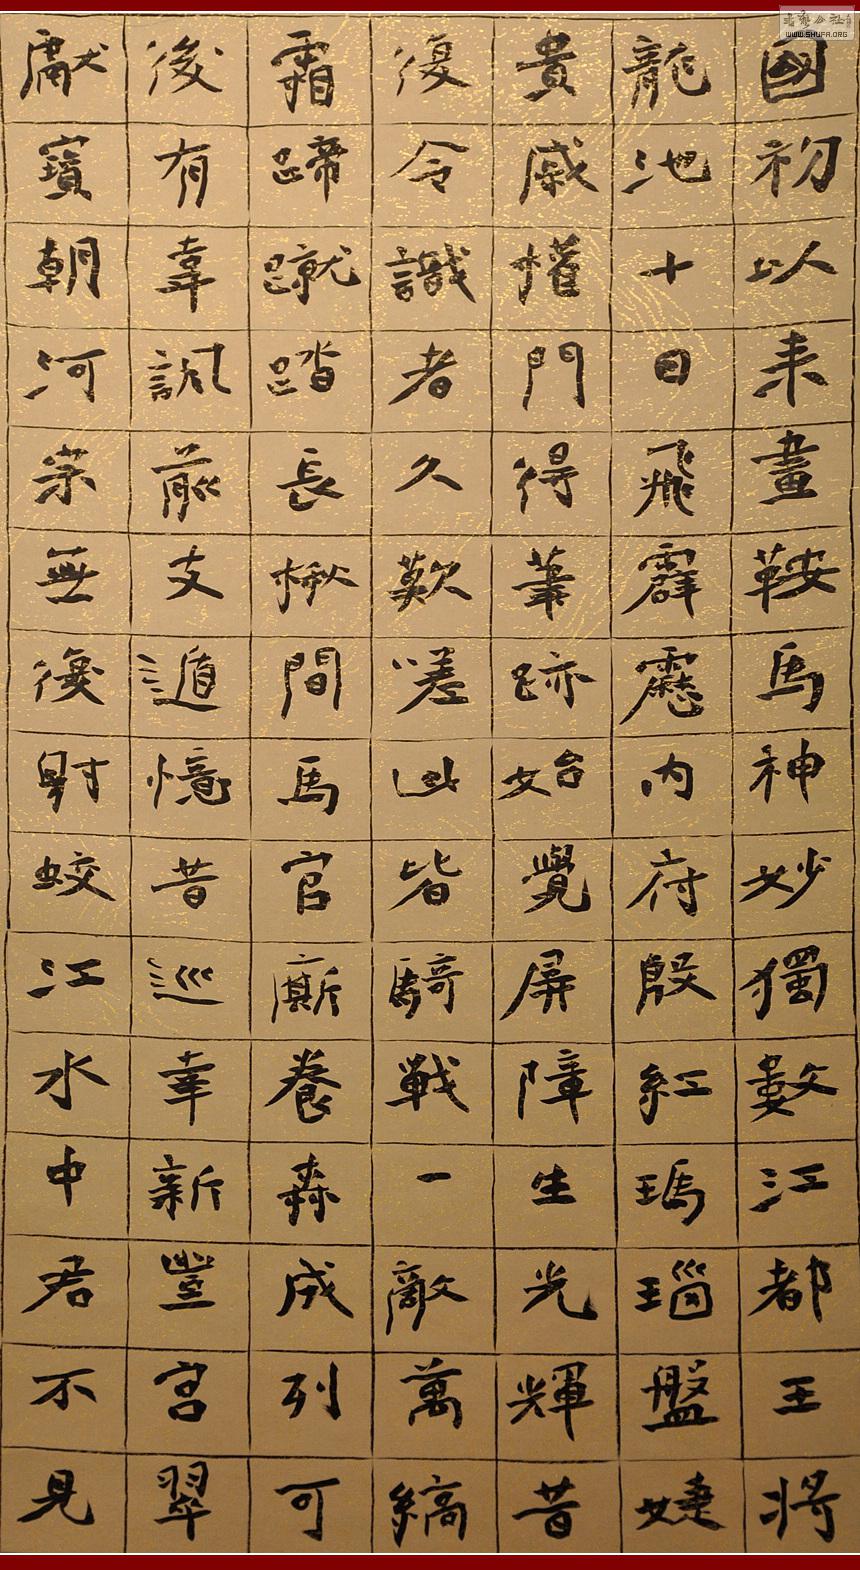 國初以来畫鞍馬神妙獨數江都王將
龍池十日飛霹靂内府殷紅瑪瑙盤婕
貴戚權門得筆跡始覺屏障生光輝昔
復令識者久歎嗟此皆騎戰一敵萬縞
霜蹄蹴踏長楸間馬官廝養森成列可
後有韋諷前支遁憶昔巡幸新豐宮翠
獻寶朝河宗無復射蛟江水中君不見
WWW.SHUFA.ORG